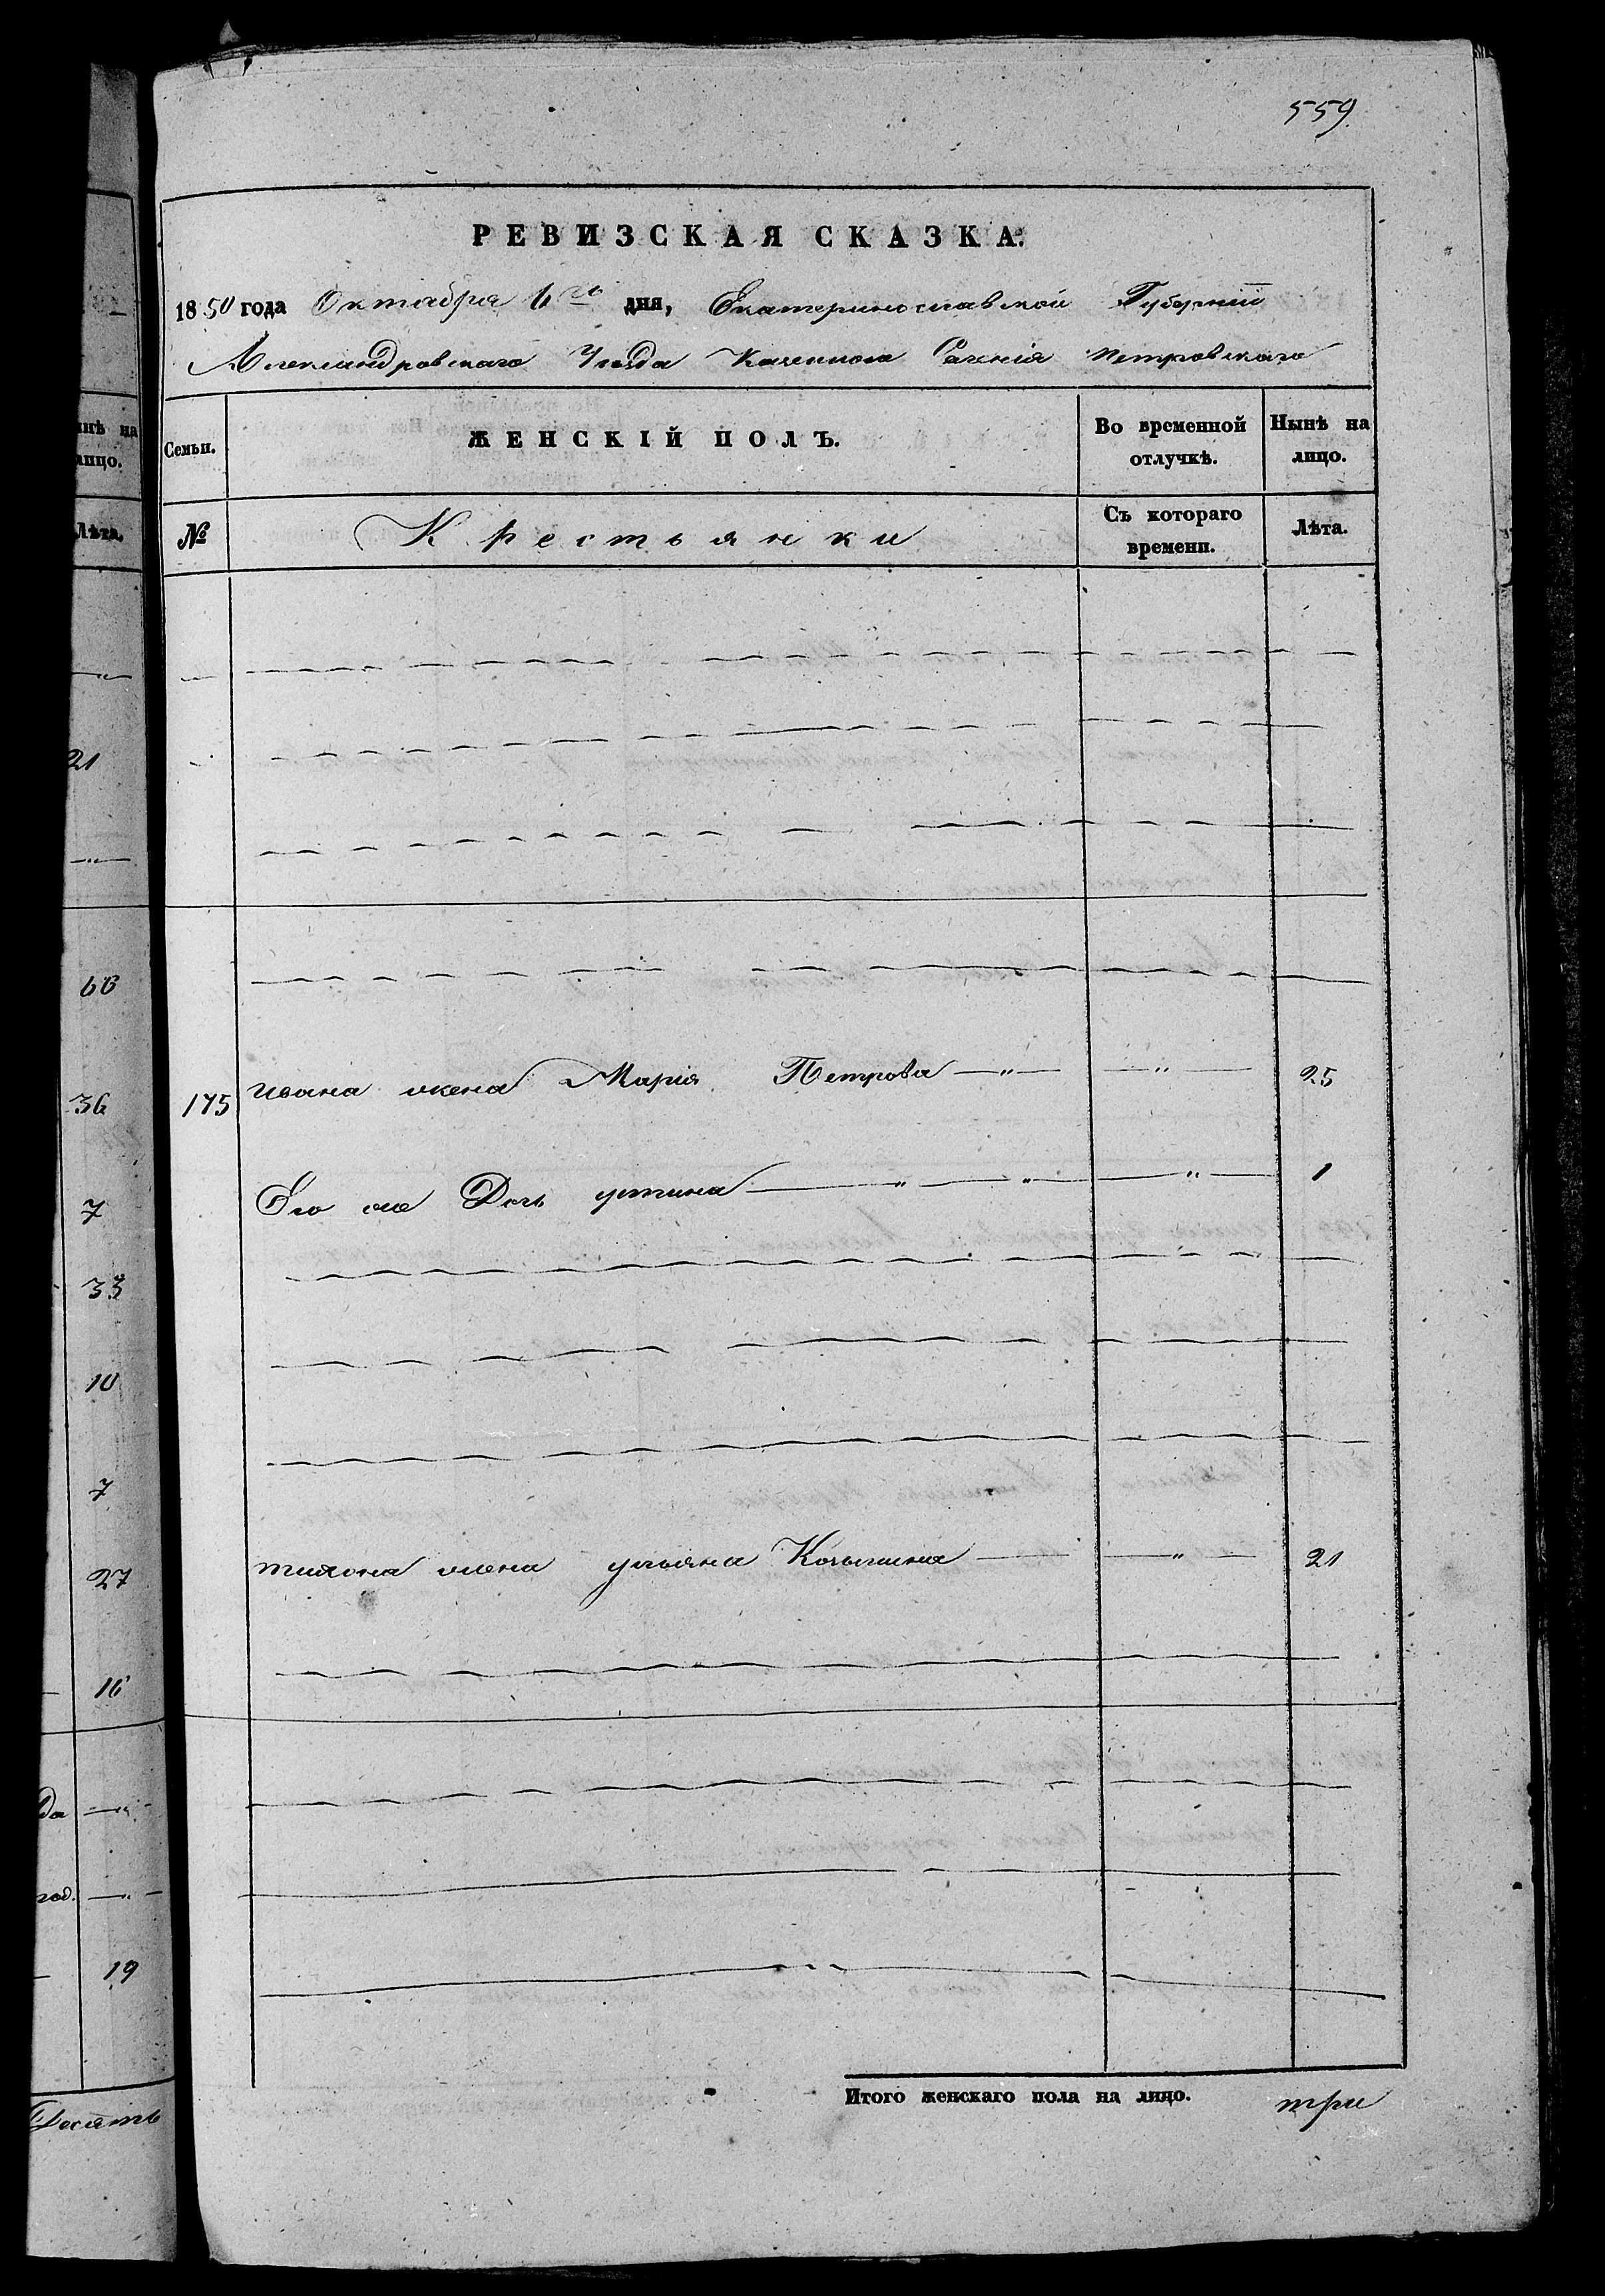 559.
РЕВИЗСКАЯ СКАЗКА.
1850 года Октября 6го дня, Екатеринославской Губерніи
Александровскаго Уезда Казеннаго Селенія Петровскаго
Семьи.
ЖЕНСКІЙ ПОЛЪ.
Во временной отлучкѣ.
Нынѣ на лицо.
№
Крестьянки
Съ котораго времени.
Лѣта.
175 Ивана жена Марія Петрова —"— —"— 25
Его же Дочь устина — " — " — " — 1
тихона жена ульяна — " — 21
Итого женскаго пола на лицо. три
нѣ на
лицо.
Лѣта.
—"—
21
—"—
66
36
7
33
10
7
27
16
да —"—
год. —"—
19
Десять